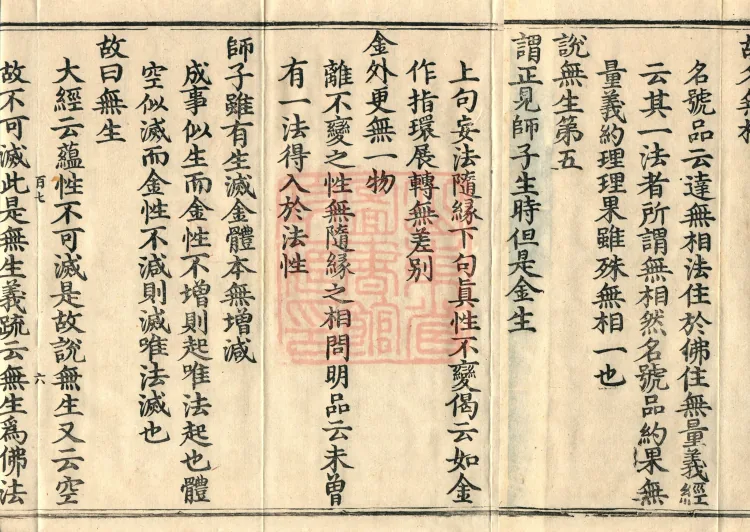 名號品云達無相法住於佛住無量義經
云其一法者所謂無相然名號品約果無
量義約理理果雖殊無相一也
說無生第五
謂正見師子生時但是金生
上句妄法隨緣下句眞性不變偈云如金
作指環展轉無差別
金外更無一物
離不變之性無隨緣之相問明品云未曾
有一法得入於法性
師子雖有生滅金體本無增減
成事似生而金性不增則起唯法起也體
空似滅而金性不減則滅唯法滅也
故曰無生
大經云蘊性不可滅是故說無生又云空
百七
六
故不可滅此是無生義疏云無生爲佛法